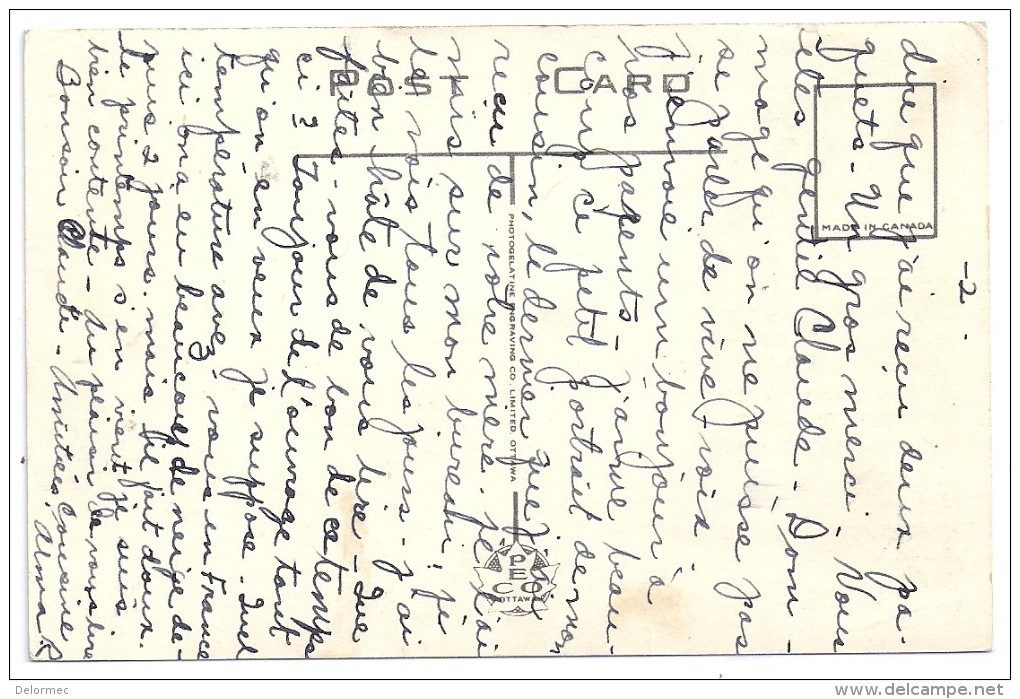 -2-
dire que j'ai reçu deux pa-
quets - Un gros merci. Vous
êtes gentil Claude - Dom-
mage qu'on ne puisse pas
se parler de vive voix
J'envoie un bonjour à
vos parents - J'aime beau-
coup ce petit portrait de mon
cousin, le dernier que j'ai
reçu de votre mère. je l'ai
mis sur mon bureau, je
le vois tous les jours - j'ai
bien hâte de vous lire - Que
faites-vous de bon de ce temps
ci ? Toujour de l'ouvrage tant
qu'on en veux je suppose. Quel
température avez vous en France
ici on a eu beaucoup de neige de-
puis 2 jours. mais il fait doux.
le printemps s'en vient je suis
bien contente - Au plaisir de vous lire
Bonsoir Claude - Amitiés, Cousine
Alma R
POST CARD
MADE IN CANADA
PHOTOGELATINE ENGRAVING CO. LIMITED OTTAWA
PECO
OTTAWA
Delormec
www.delcampe.net